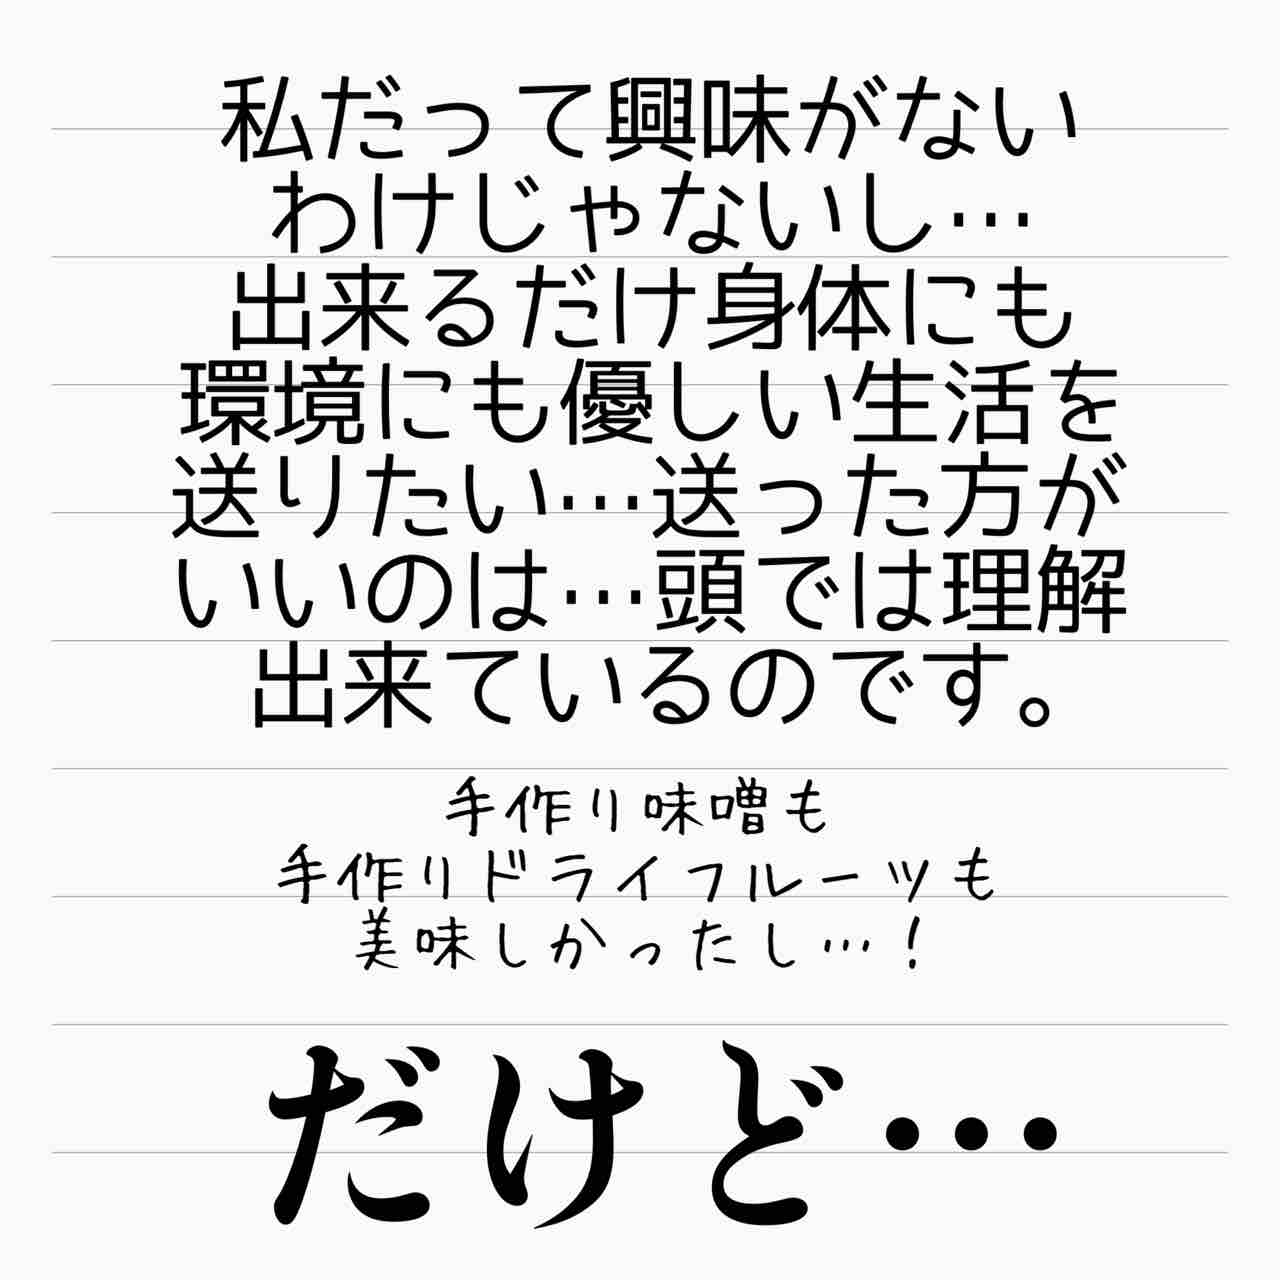 私だって興味がない
わけじゃないし…
出来るだけ身体にも
環境にも優しい生活を
送りたい…送った方が
いいのは…頭では理解
出来ているのです。
手作り味噌も
手作りドライフルーツも
美味しかったし…！
だけど…